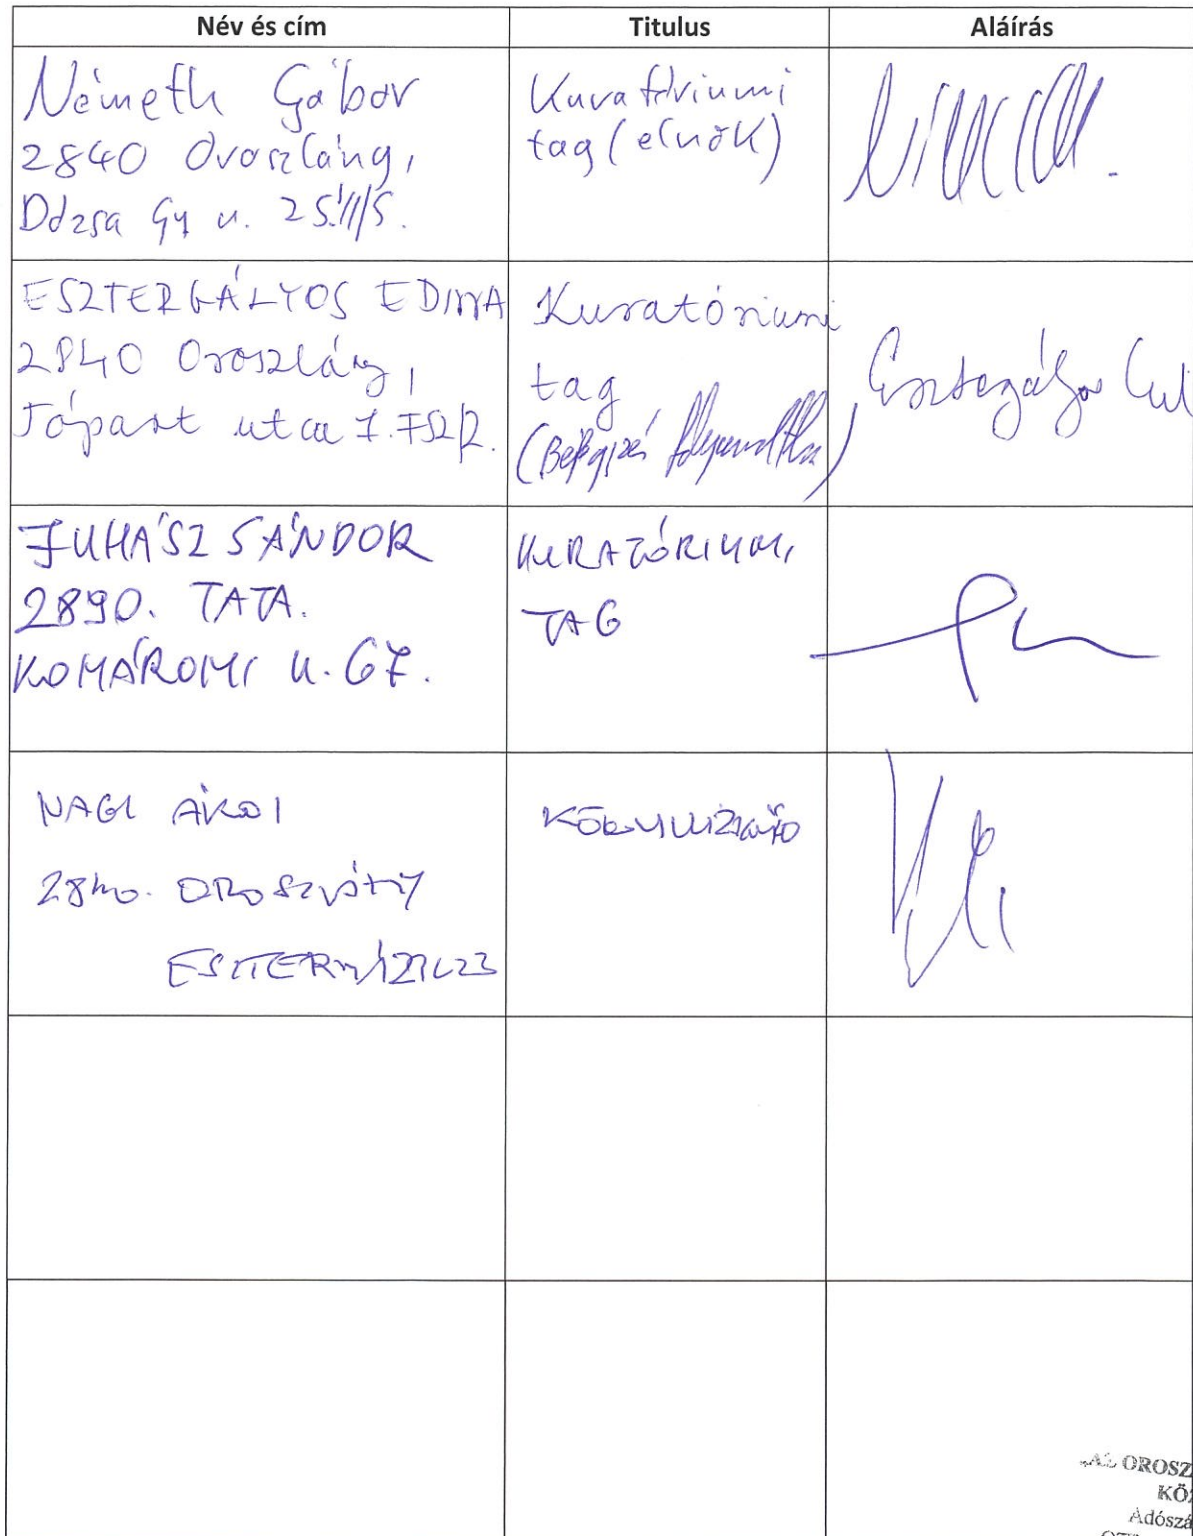 Név és cím Titulus Aláírás
Németh Gábor
2840 Oroszlány,
Dózsa Gy u. 25.II/5.
Kuratóriumi
tag (elnök)
ESZTERGÁLYOS EDINA
2840 Oroszlány,
Tópart utca 7. FSZ/2.
Kuratóriumi
tag
(Bejegyzés
JUHÁSZ SÁNDOR
2890. TATA.
KOMÁROMI u. 67.
KURATÓRIUMI
TAG
NAGY
2840. OROSZLÁNY
KÖNYVVIZSGÁLÓ
OROSZ
KÖ
Adószá